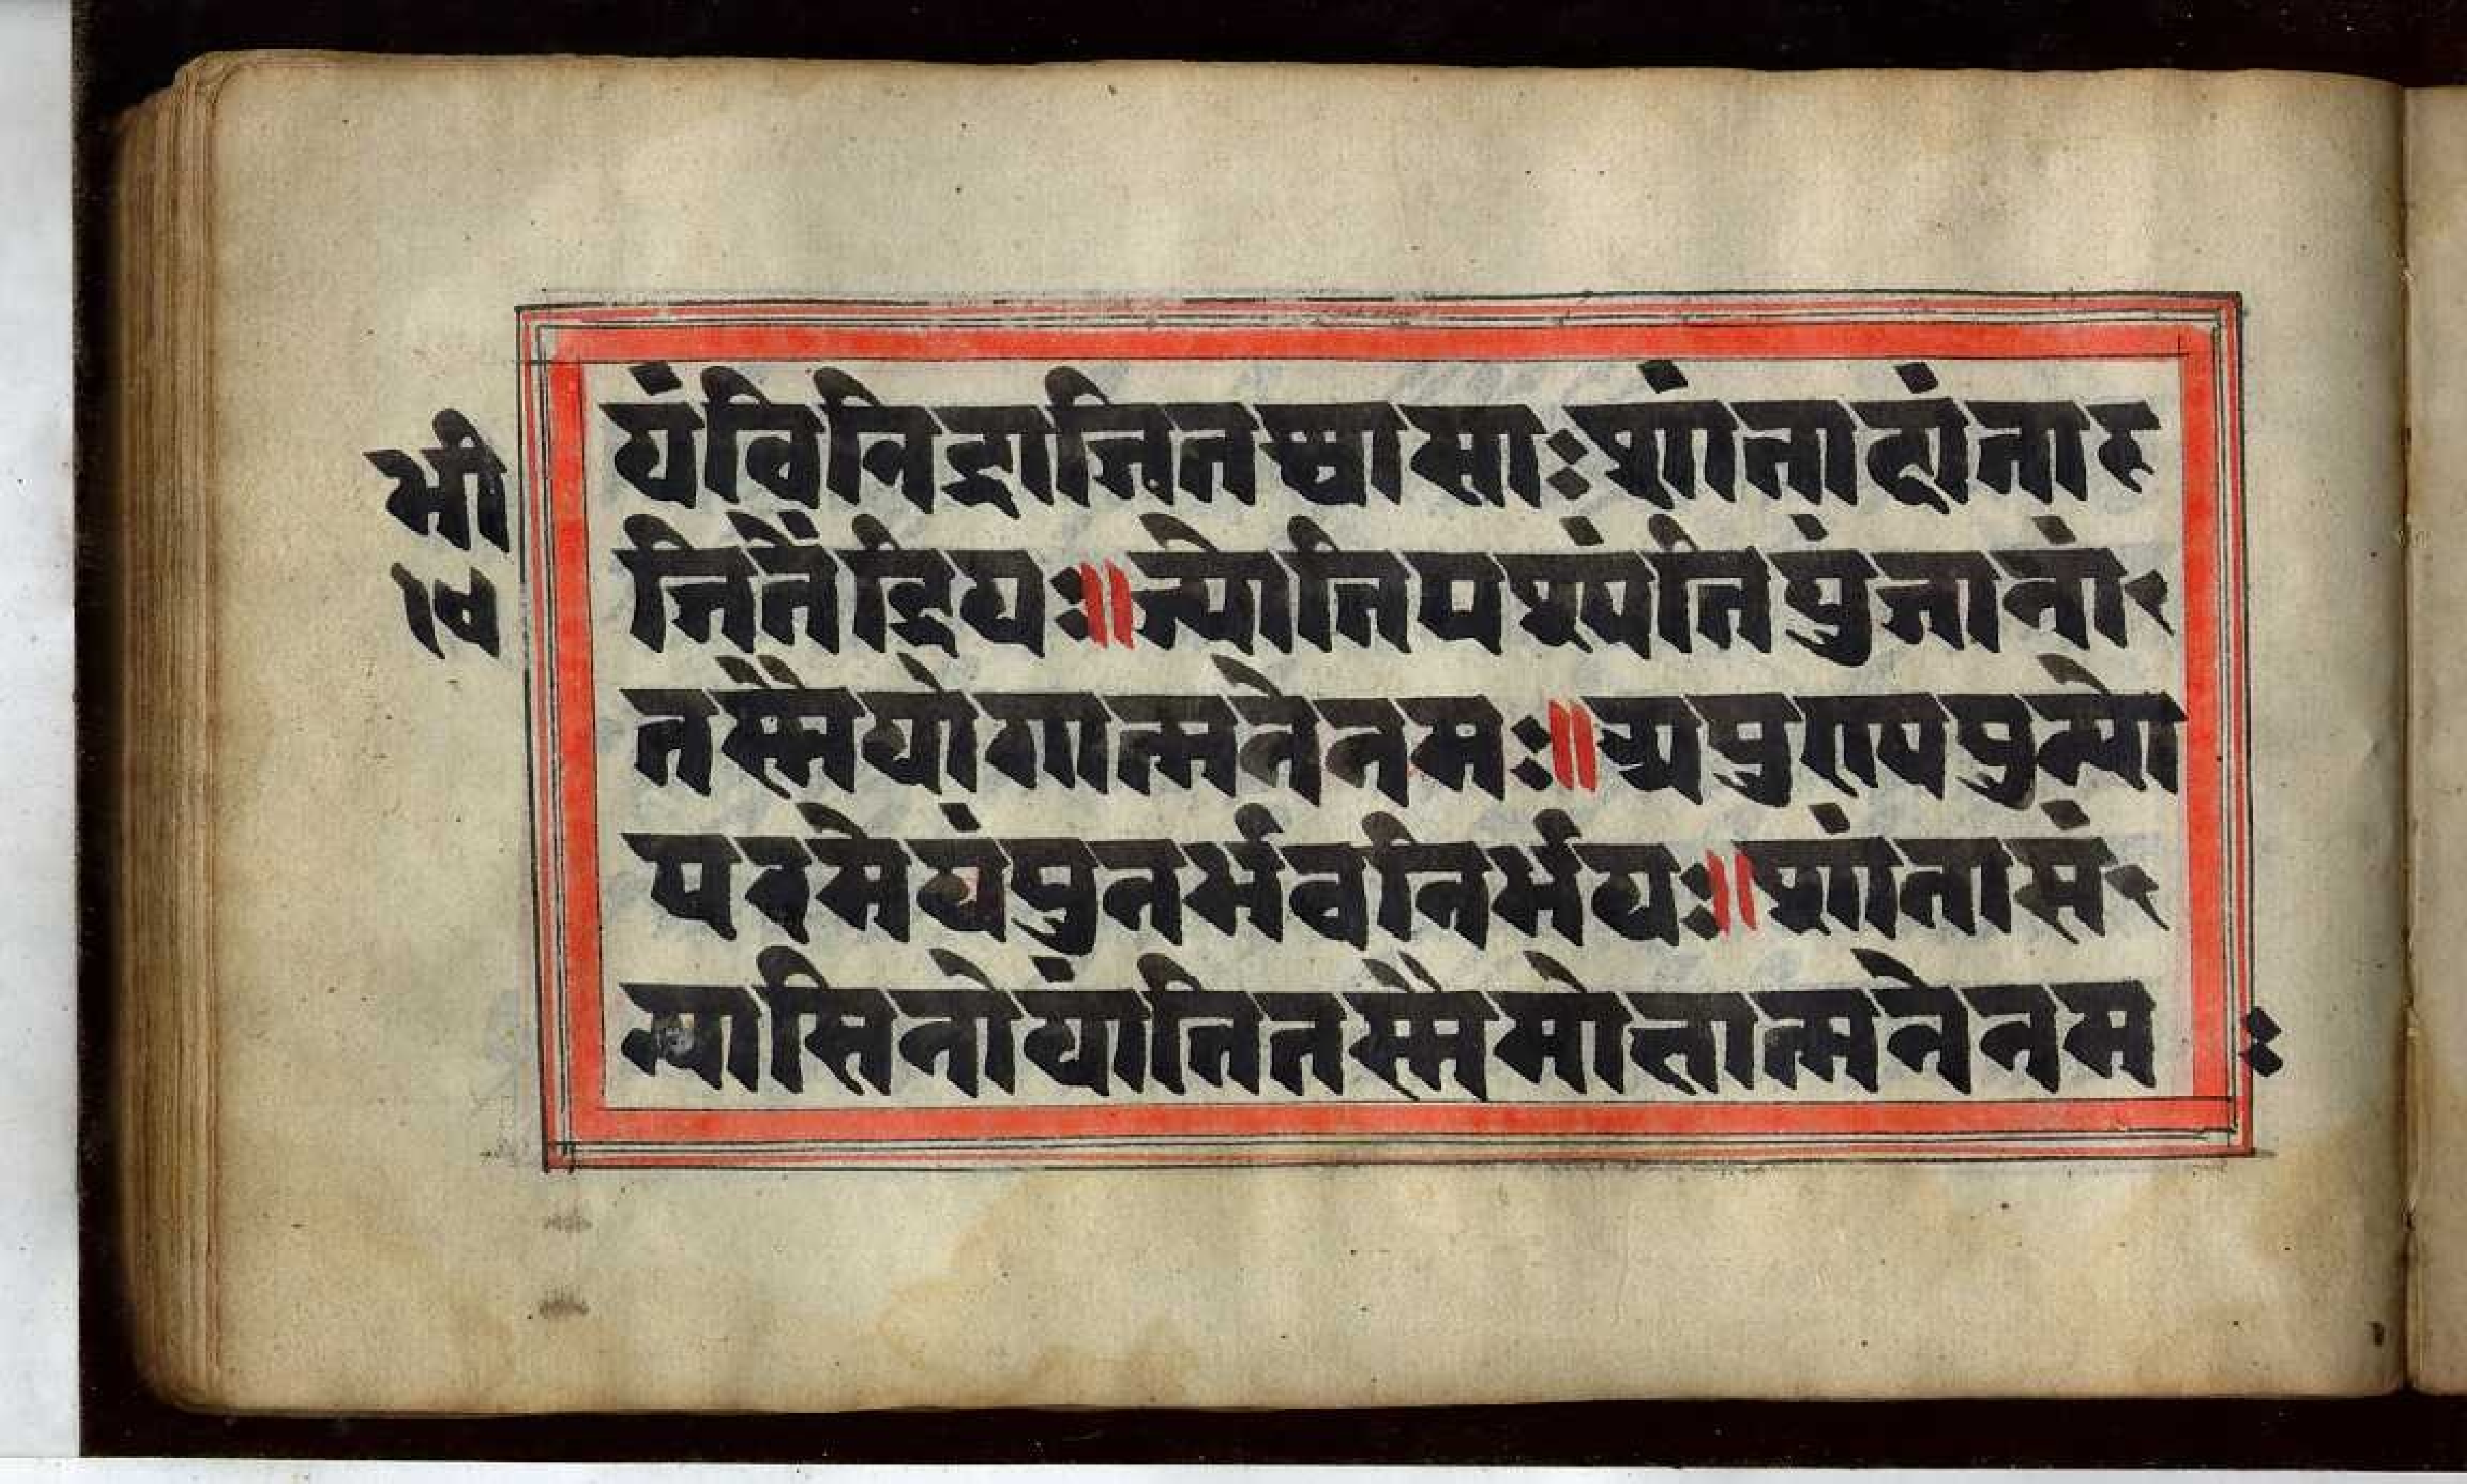 यंविनिद्राजितश्वासाःशांतादांताह
जितेंद्रियः॥ज्योतिपश्यंपंतियुंजानां
तस्मैयोगात्मनेनमः॥अपुएयपुन्यो
परमेयंपुनर्भवनिर्भयः॥शांतासं
न्यासिनोयांतितस्मैमोक्षात्मनेनम
ः
भी